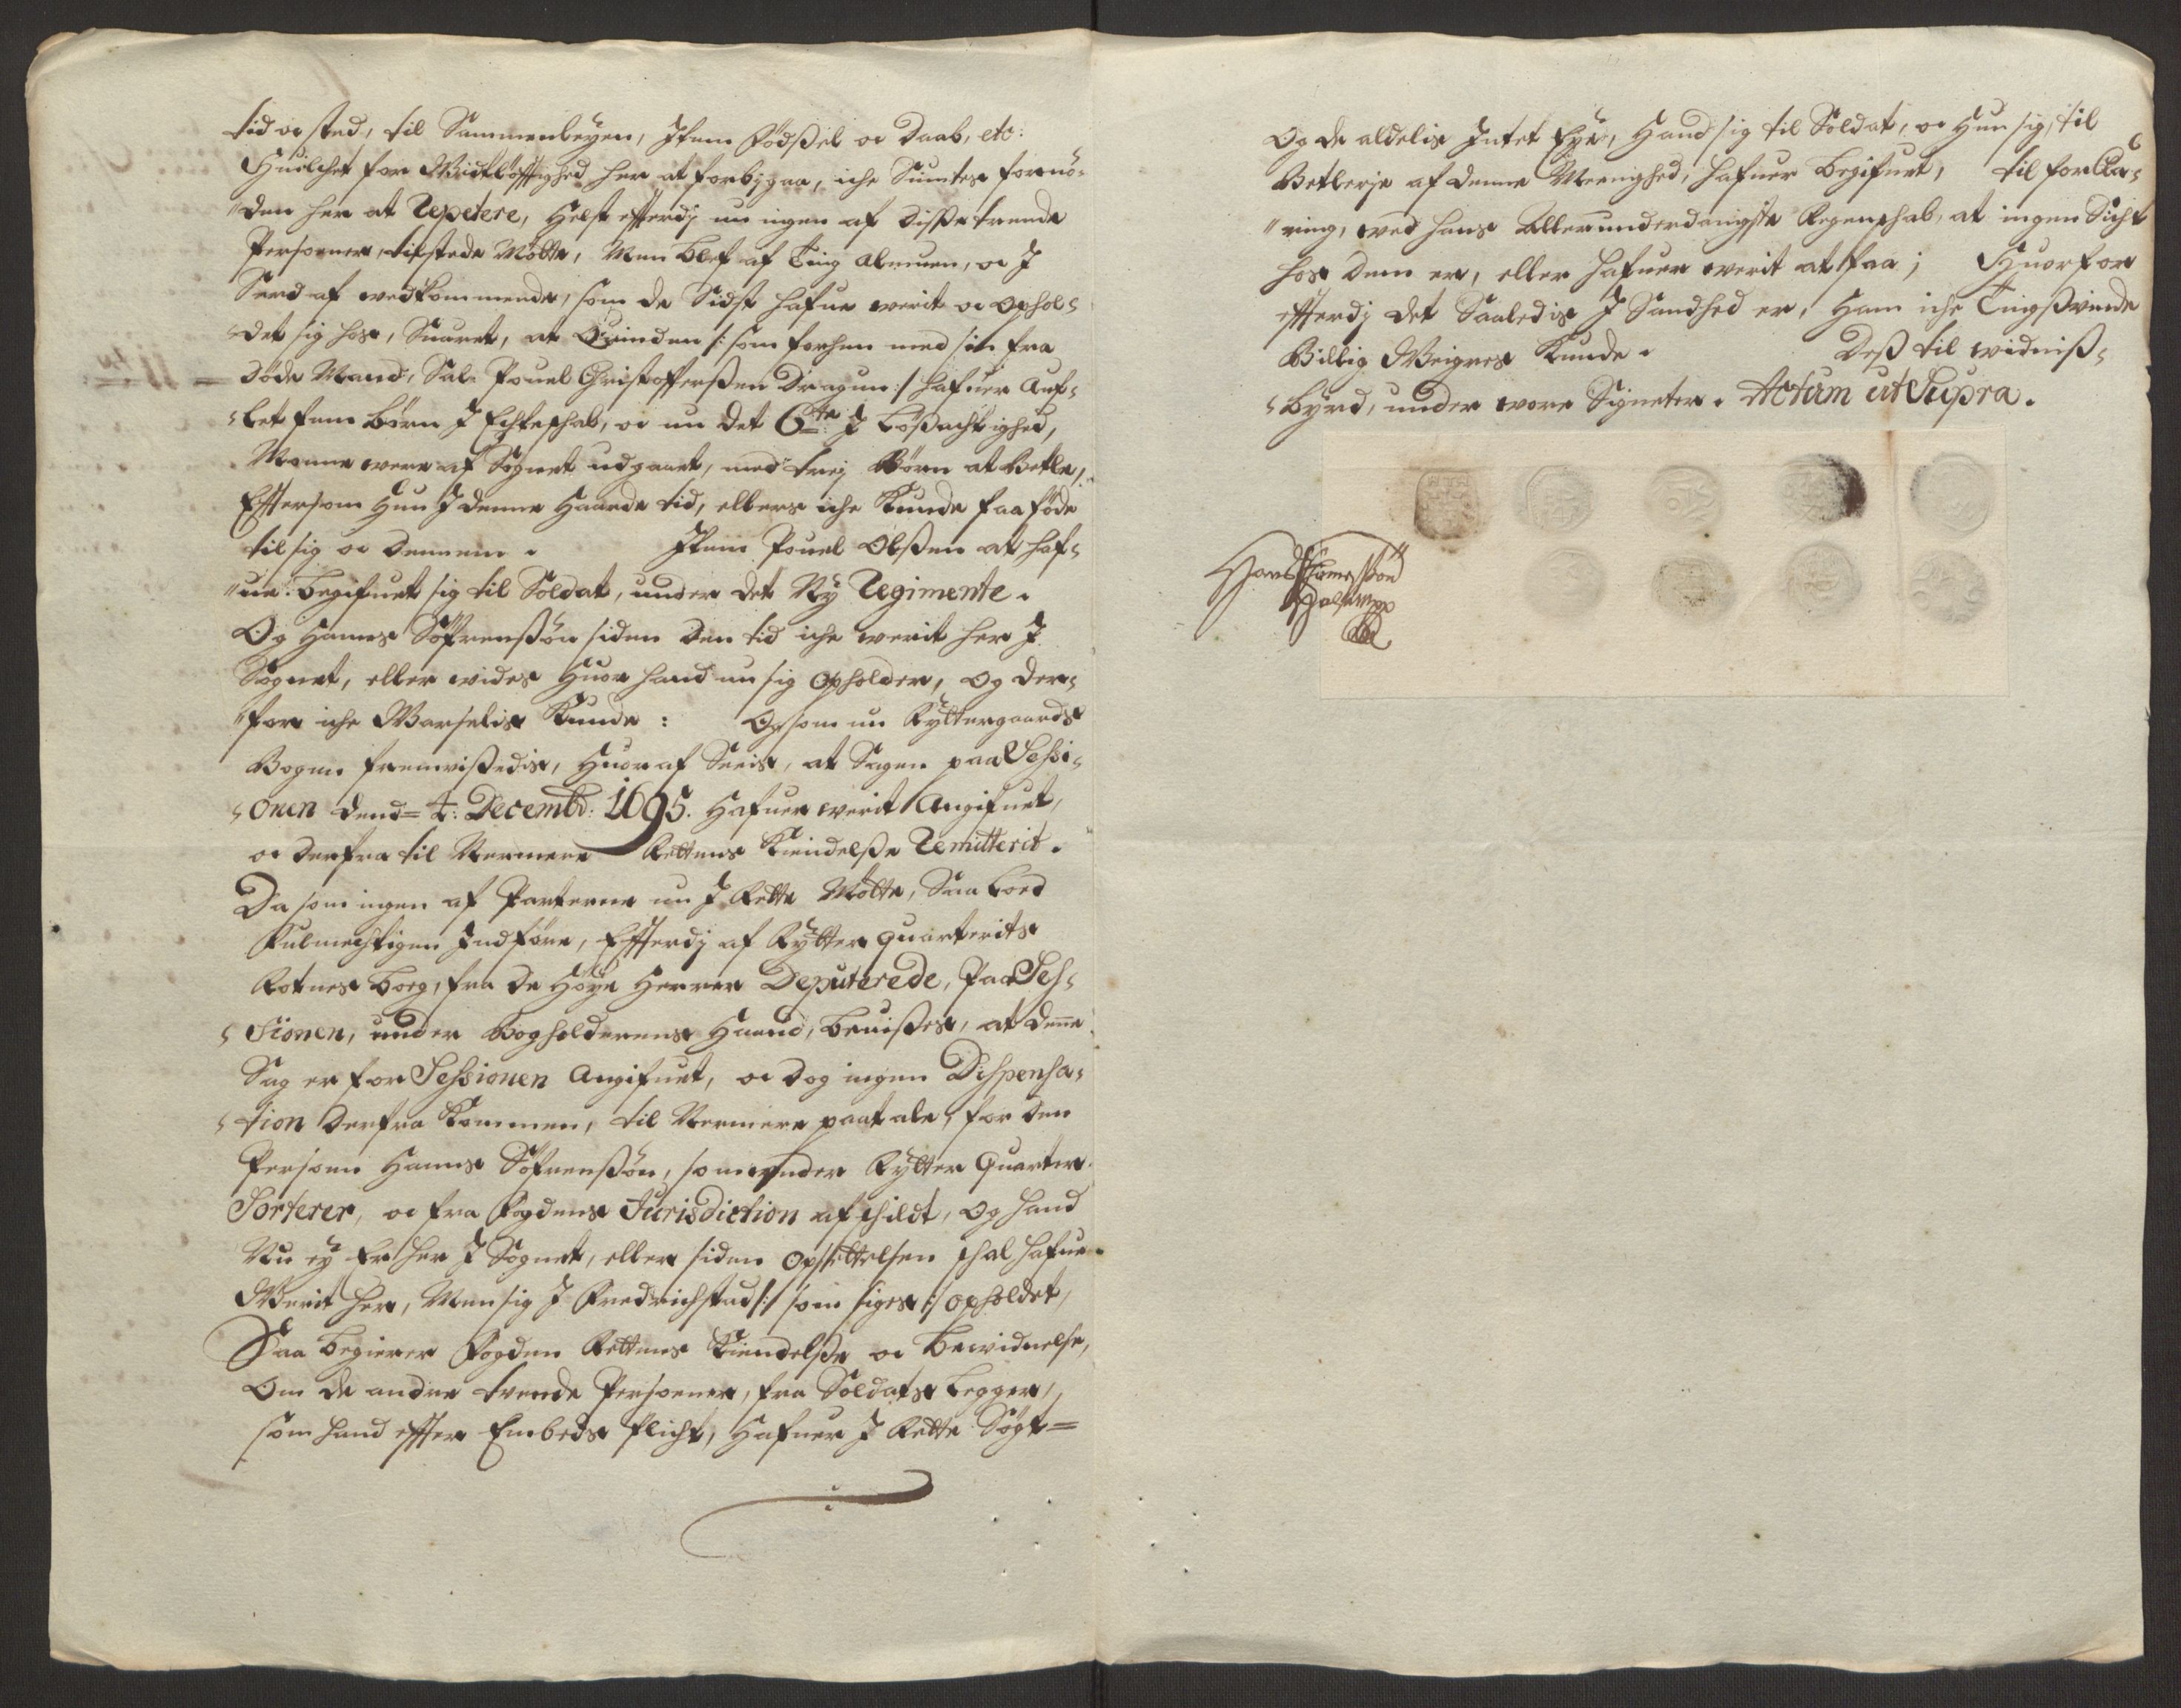 tid oc sted, til Sammenleyen, Item Fødßel oc Daab, etc:
Huilchet for Widtløfftighed her at forbigaa, iche Siuntes fornø-
"den her at Repetere, Helst effterdj nu ingen af disse trende
Personer, tilstede Møtte, Men blef af Ting Almuen, oc J
Serd af wedkommende, som de Sidst hafue werit oc ophol-
-det sig hos, Suaret, at Quinden /: som forhen med sin fra
døde Mand, Sal. Pouel Christofferßen Dragun :/ hafuer Auf-
-let fem børn J Echteschab, oc nu det 6te J Løßachtighed,
Monne were af Sognet udgaaet, med trej Børn at Betle,
Efftersom Hun J denne Haarde tid, ellers iche Kunde faa føde
til sig oc dennem. Item Pouel Olßen at haf-
"ue begifuet sig til Soldat, under det Ny Regimente.
Og Hanns Søfrenßøn siden den tid iche werit her J
Sognet, eller wides Huor hand nu sig opholder, og der-
"for iche Warselis Kunde: Og som nu Rytter gaards
Bogen fremwißedis, Huoraf Seeis, at Sagen paa Sessi-
-onen dend= 4: Decembr: 1695. Hafuer werit Angifuet,
oc derfra til Nermere Rettens Kiendelße Remitterit.
Da som ingen af Parterne nu J Rette Møtte, Saa loed
Fulmechtigen Jndføre, Effterdj af Rytter quarterits
Rotnes boeg, fra de Høye Herrer Deputerede, Paa Ses-
-Sionen, under Bogholderens Haand, beuißes, at denne
Sag er for Sessionen Angifuet, oc dog ingen Dispensa-
-tion derfra Kommen, til Nermere paatale, for den
Person Hanns Søfrenßøn, som under Rytter Quarter
Sorterer, oc fra Fogdens Jurisdiction afschildt, Og hand
Nu ey Er her J Sognet, eller siden opsettelsen schal hafue
Werit her, Men sig J Fredrichstad /: som siges :/ opholdet,
Saa begierer Fogden Rettens Kiendelße oc bewidnelse,
Om de andre tvende Personer, fra Soldats Legger,
som hand effter Embeds Plicht, Hafuer J Rette Søgt=
Og de aldelis Intet Eye, Hand sig til Soldat, oc Hun sig til
Betlerje af denne Meenighed, hafuer begifuet, til forKla-
"ring, wed hans Allerunderdanigste Regenschab, at ingen Sicht
hos dem er, eller hafuer werit at faa; Huorfor
effterdj det Saaledis J Sandhed er, Ham iche Tingßvinde
Billig Weigres Kunde. Deß til widniß-
-byrd, under wore Signeter. Actum ut Supra.